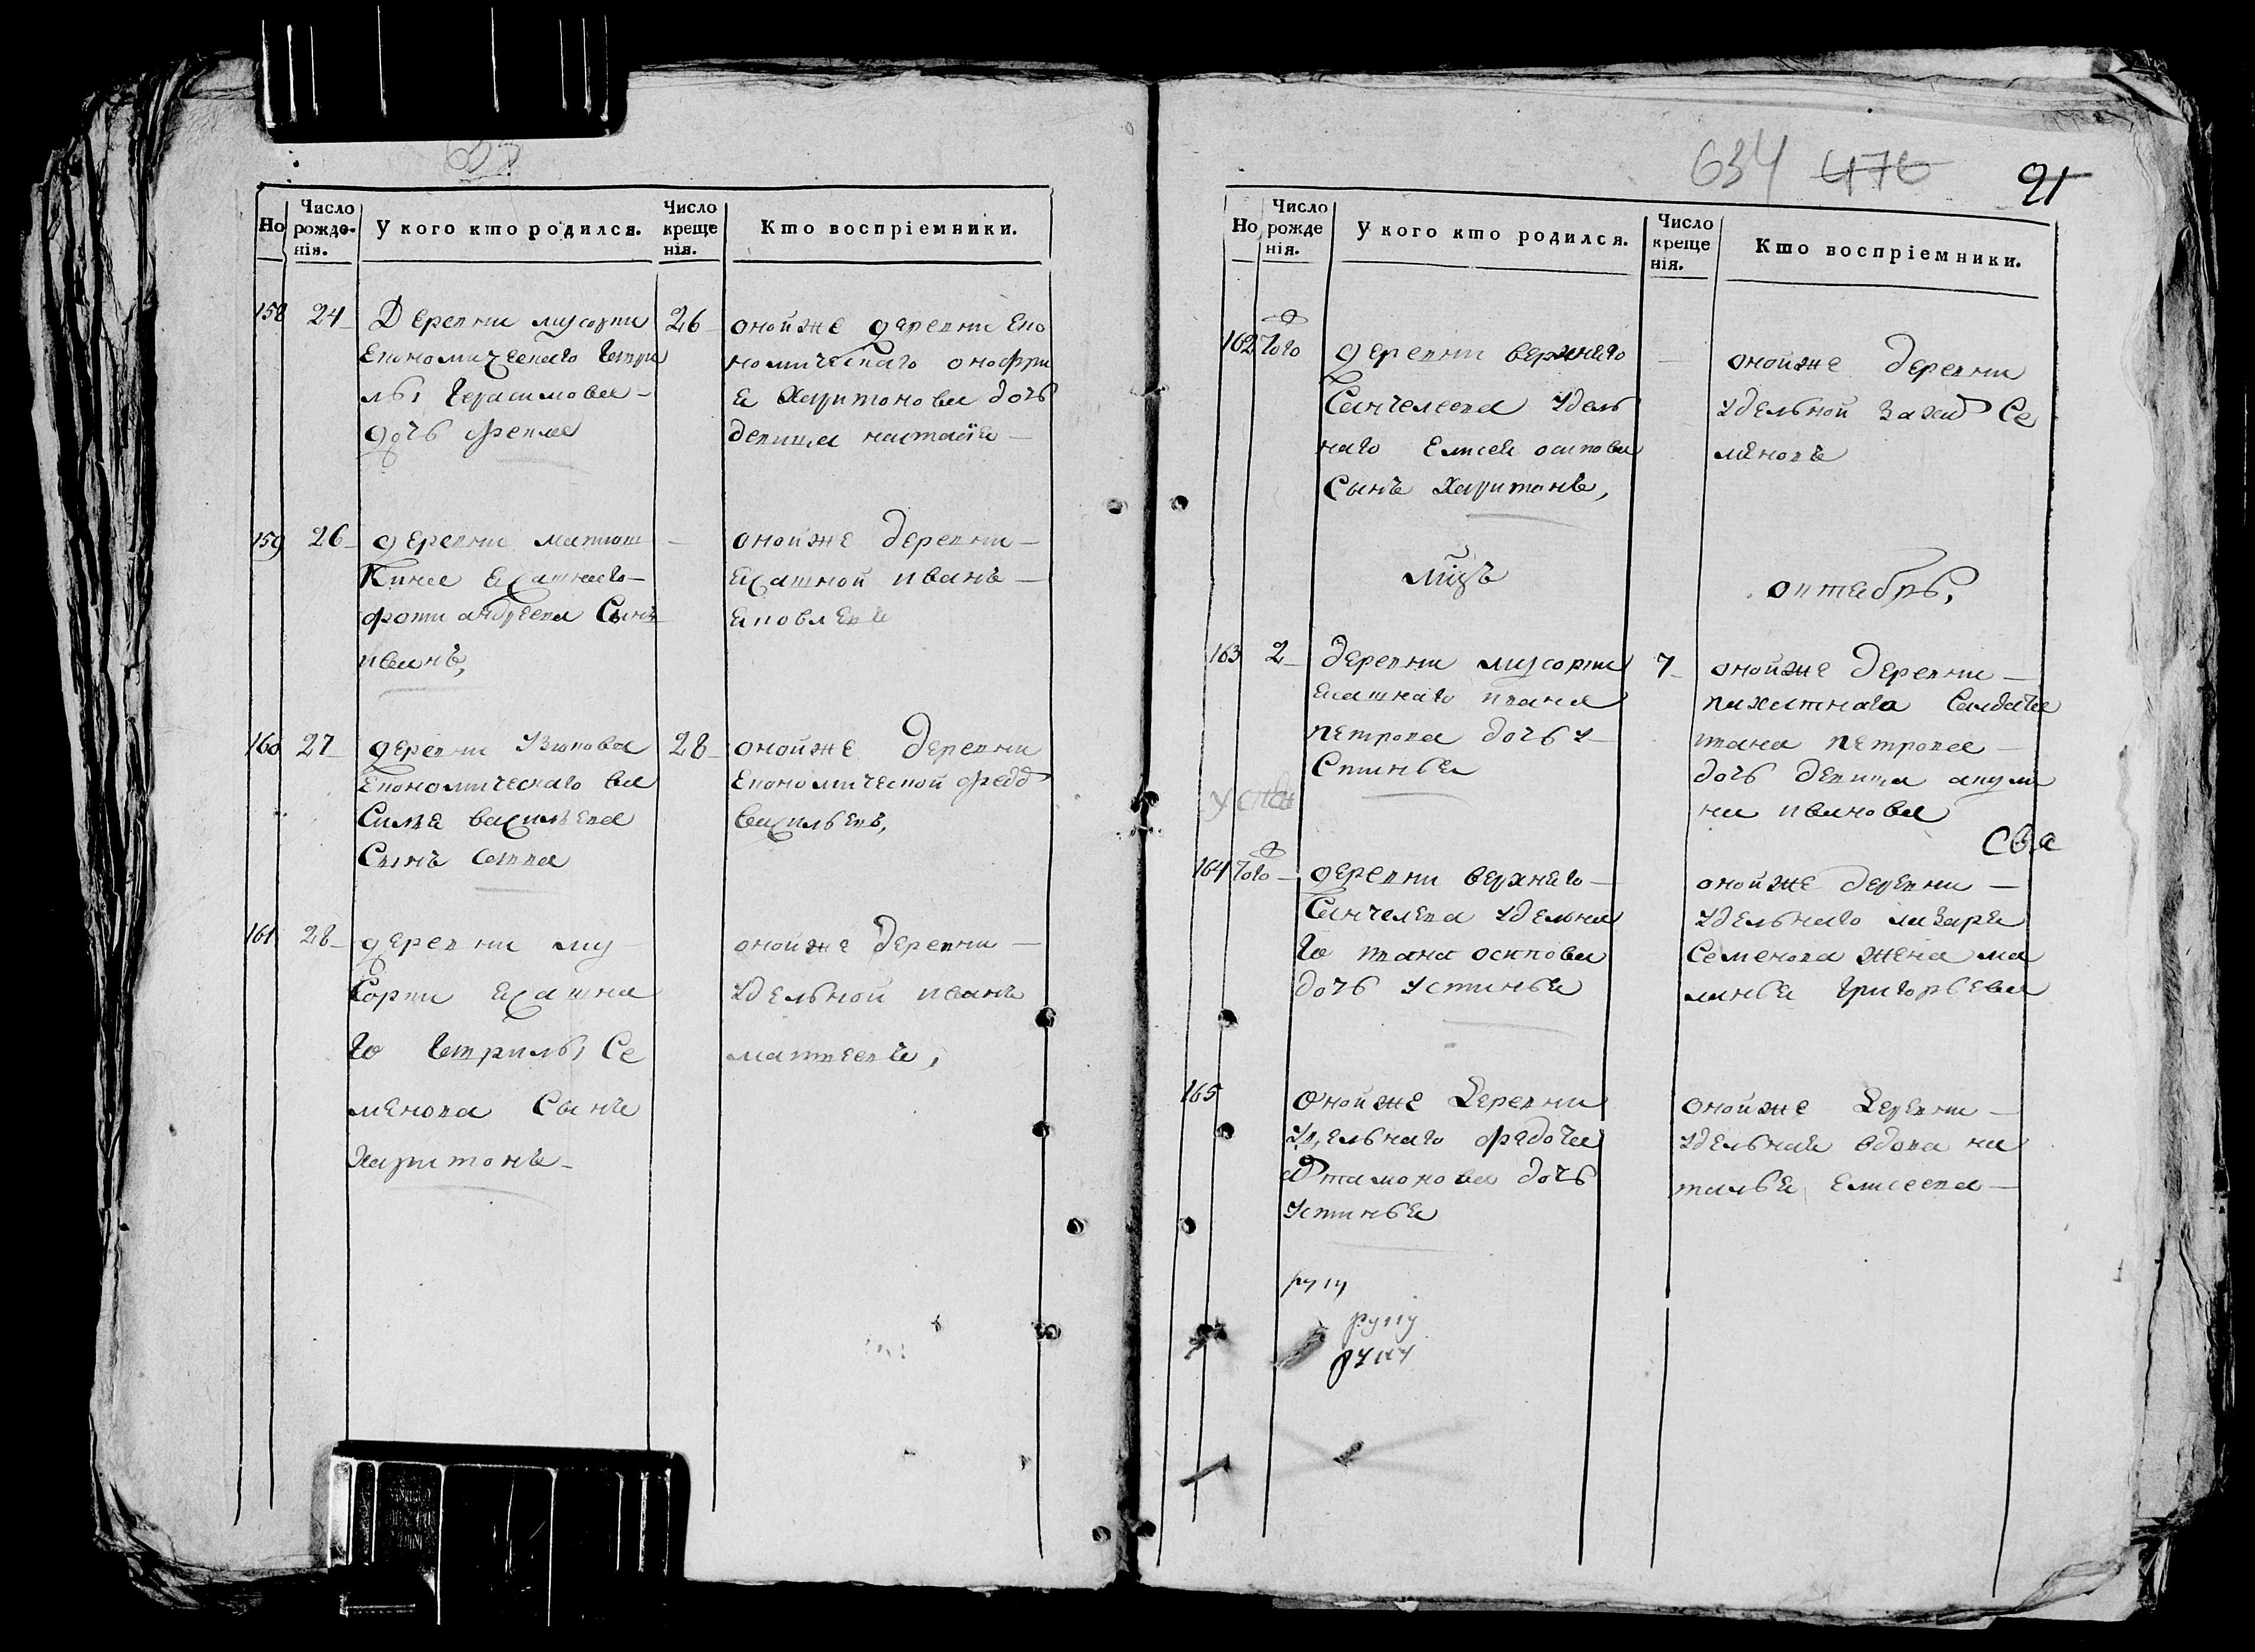 Но
Число рожде-нія.
У кого кто родился.
Число креще нія.
Кто воспріемники.
158
24
Деревни мусорки
Економическаго Гаври
лы Герасимова
дочь фекла
26
онойже деревни Еко
номическаго онофри
я Харитонова дочь
девица настасія
159
26
деревни матюш
Кина ясашнаго
фоти андреева Сынъ
иванъ,
онойже деревни
ясашной иванъ
яковлевъ
160
27
деревни Узюкова
Економическаго ва
Силья васильева
Сынъ Савва
28
онойже деревни
Економической федоръ
васильевъ,
161
28
деревни му
Сорки ясашна
го Гаврилы Се
менова Сынъ
Харитонъ
онойже деревни
Удельной иванъ
матвеевъ,
634 476
91
Но
Число рожде нія.
У кого кто родился.
Число креще нія.
Кто воспріемники.
162
Того
деревни верхнего
Санчелеева Удель
наго Елисея осипова
Сынъ Харитонъ,
онойже деревни
Удельной Захаръ Се
меновъ
мцъ
октябрь,
163
2
деревни мусорки
ясашнаго ивана
петрова дочь у
Стинья
7
онойже деревни
пахатнаго Салдата
ивана петрова
дочь девица акули
на иванова
164
Того
деревни верхнего
Санчелева Удельна
го ивана осипова
дочь Устинья
онойже деревни
Удельнаго лазаря
Семенова жена ма
ланья григорьева
165
онойже Деревни
Удельнаго федота
Артамонова дочь
Устинья
онойже Деревни
Удельная вдова на
талья Елисеева
руку
руку
руку